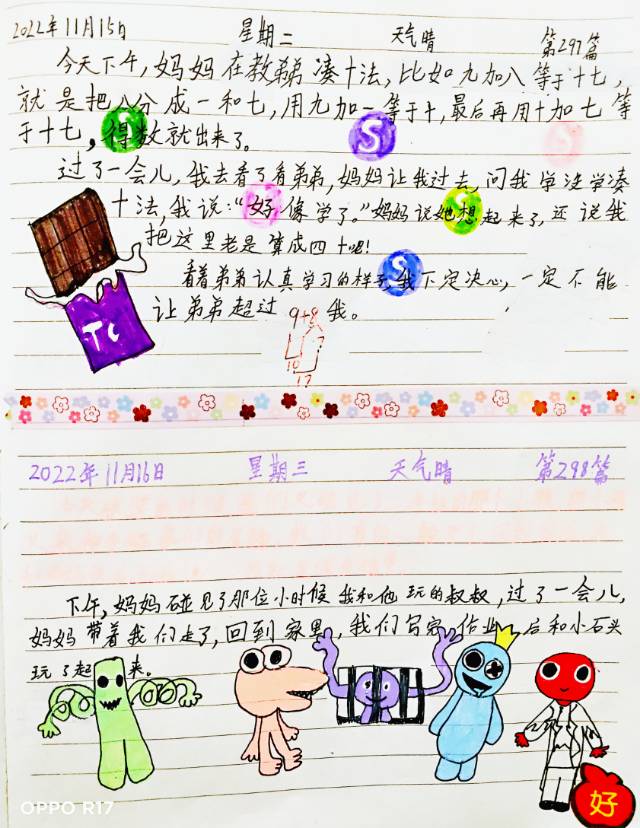 2022年11月15日 星期二 天气晴 第297篇
今天下午，妈妈在教弟弟凑十法，比如九加八等于十七，
就是把八分成一和七，用九加一等于十，最后再用十加七等
于十七，得数就出来了。
过了一会儿，我去看了看弟弟，妈妈让我过去，问我学没学凑
十法，我说：“好像学了。”妈妈说她想起来了，还说我
把这里老是算成四十呢！
看着弟弟认真学习的样子，我下定决心，一定不能
让弟弟超过我。
9+8
1 7
10
17
S
S
S
S
TC
2022年11月16日 星期三 天气晴 第298篇
下午，妈妈碰见了那位小时候我和他玩的叔叔，过了一会儿，
妈妈带着我们走了，回到家里，我们写完作业，后和小石头
玩了起来。
好
OPPO R17